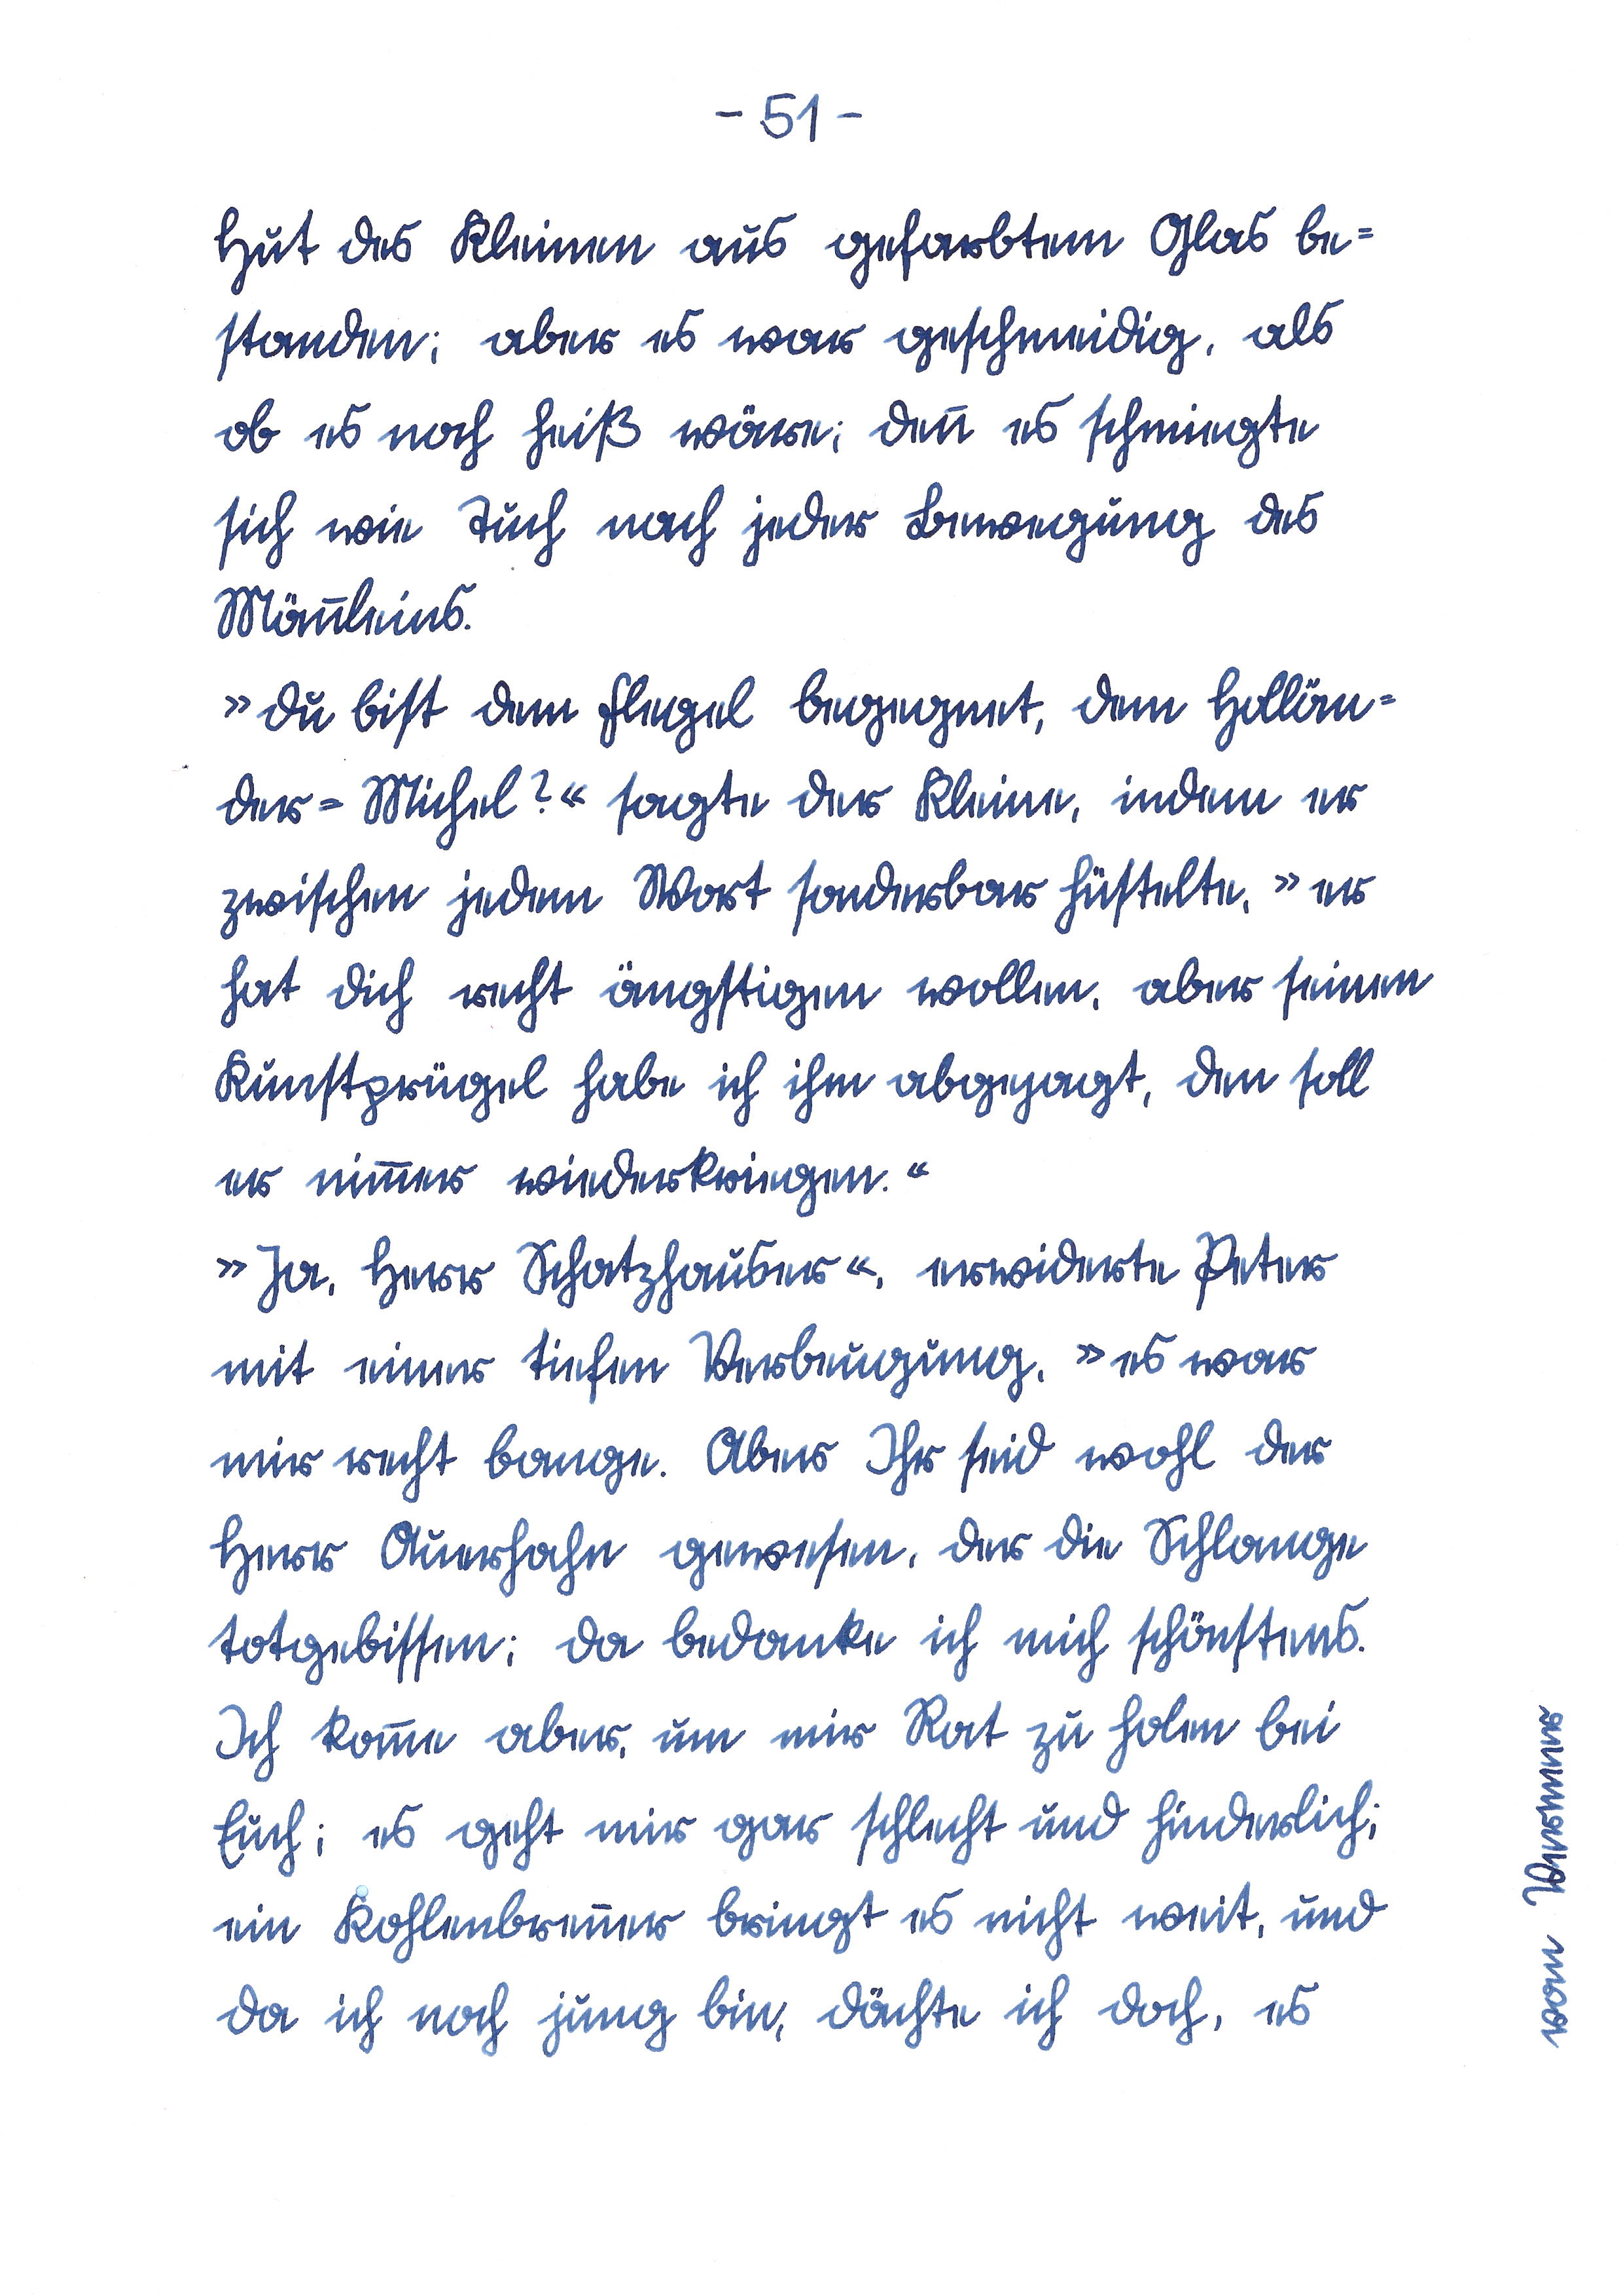 - 51 -
Hut des Kleinen aus gefarbtem Glas be=
standen; aber es war geschmeidig, als
ob es noch heiß wäre; den̄ es schmiegte
sich wie Tuch nach jeder Bewegung des
Män̄leins.
»Du bist dem Flegel begegnet, dem Hollän=
der=Michel?« sagte der Kleine, indem er
zwischen jedem Wort sonderbar hüstelte, »er
hat dich recht ängstigen wollen, aber seinen
Kunstprügel habe ich ihm abgejagt, den soll
er nim̄er wiederkriegen.«
»Ja, Herr Schatzhauser«, erwiderte Peter
mit einer tiefen Verbeugung, »es war
mir recht bange. Aber Ihr seid wohl der
Herr Auerhahn gewesen, der die Schlange
totgebissen; da bedanke ich mich schönstens.
Ich kom̄e aber, um mir Rat zu holen bei
Euch; es geht mir gar schlecht und hinderlich;
ein Kohlenbren̄er bringt es nicht weit, und
da ich noch jung bin, dächte ich doch, es
von